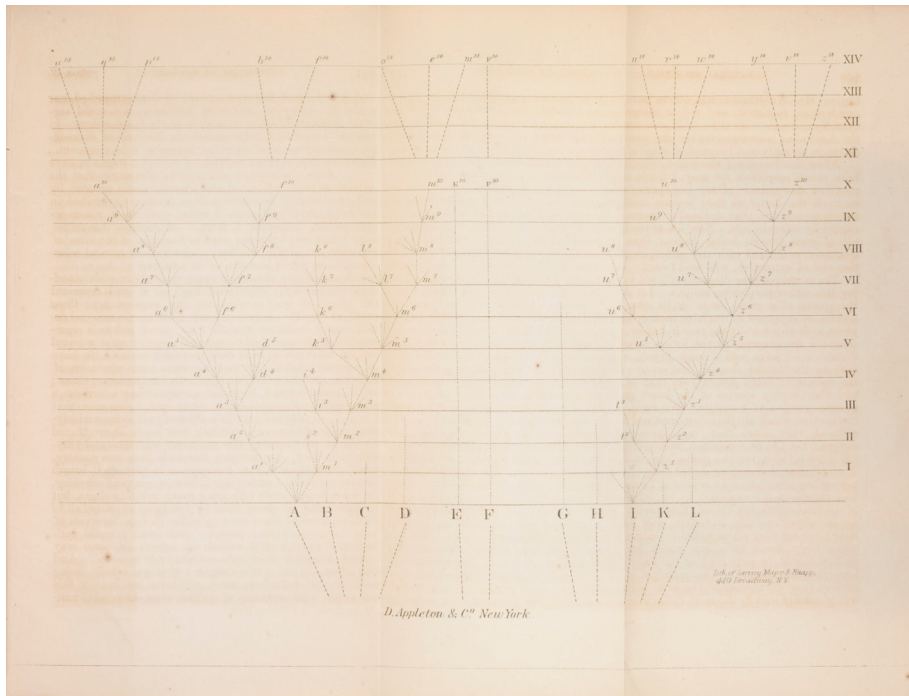 a¹⁴ q¹⁴ p¹⁴ b¹⁴ f¹⁴ o¹⁴ e¹⁴ m¹⁴ n¹⁴ r¹⁴ w¹⁴ y¹⁴ v¹⁴ z¹⁴ XIV
XIII
XII
XI
a¹⁰ f¹⁰ m¹⁰ E¹⁰ F¹⁰ z¹⁰ X
a⁹ f⁹ m⁹ u⁹ z⁹ IX
a⁸ f⁸ k⁸ l⁸ m⁸ u⁸ u⁸ z⁸ VIII
a⁷ f⁷ k⁷ l⁷ m⁷ u⁷ u⁷ z⁷ VII
a⁶ f⁶ k⁶ m⁶ u⁶ z⁶ VI
a⁵ d⁵ k⁵ m⁵ u⁵ z⁵ V
a⁴ d⁴ i⁴ m⁴ z⁴ IV
a³ i³ m³ t³ z³ III
a² s² m² t² z² II
a¹ m¹ z¹ I
A B C D E F G H I K L
Lith. of Sarony, Major & Knapp,
449 Broadway, N.Y.
D. Appleton & Cº. New York.